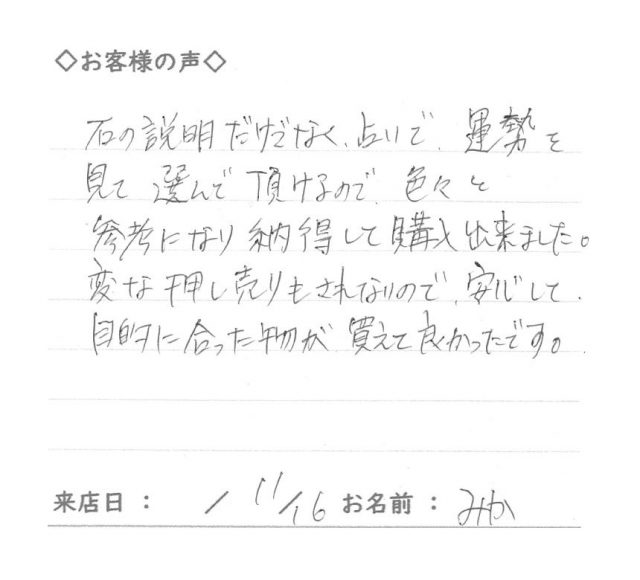 ◇お客様の声◇
石の説明だけでなく、占いで、運勢を
見て選んで頂けるので、色々と
参考になり納得して購入出来ました。
変な押し売りもされないので、安心して、
目的に合った物が買えて良かったです。
来店日： / 11/16 お名前：みか